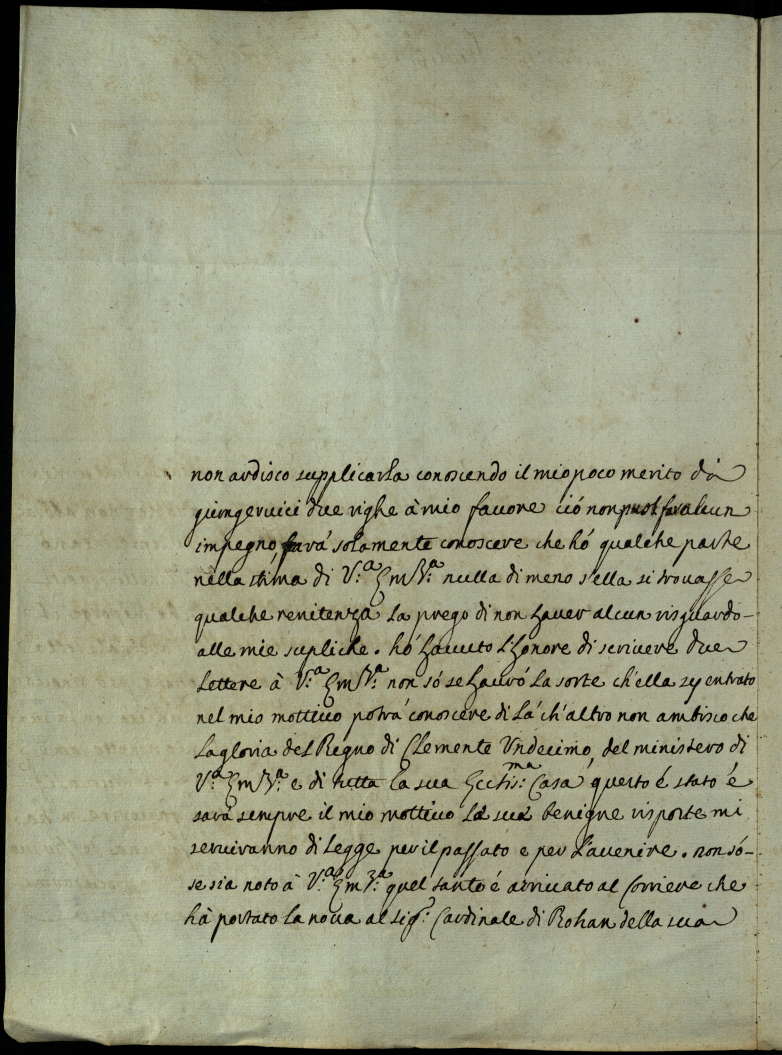 non ardisco supplicarla conoscendo il mio poco merito dà
giungervici due righe à mio favore ciò non puol far alcun
impegno, farà solamente conoscere che hó qualche parte
nella stima di V.ª Em.ª nulla di meno s'ella si trovasse
qualche renitenza la prego di non haver alcun risguardo-
alle mie supliche. hó havuto l'honore di scrivere due
lettere à V.ª Em.ª non só se havró la sorte ch'ella sy entrato
nel mio mottivo potrá conoscere di lá ch'altro non ambisco che
la gloria del Regno di Clemente Undecimo, del ministero di
V.ª Em.ª e di tutta la sua Ecctis:ma Casa, questo é stato é
sará sempre il mio mottivo la sua benigne risposte mi
serviranno di legge per il passato e per l'avenire. non só-
se sia noto à V.ª Em.ª quel tanto é arrivato al Corriere che
hà portato la nova al Sig.r Cardinale di Rohan della sua